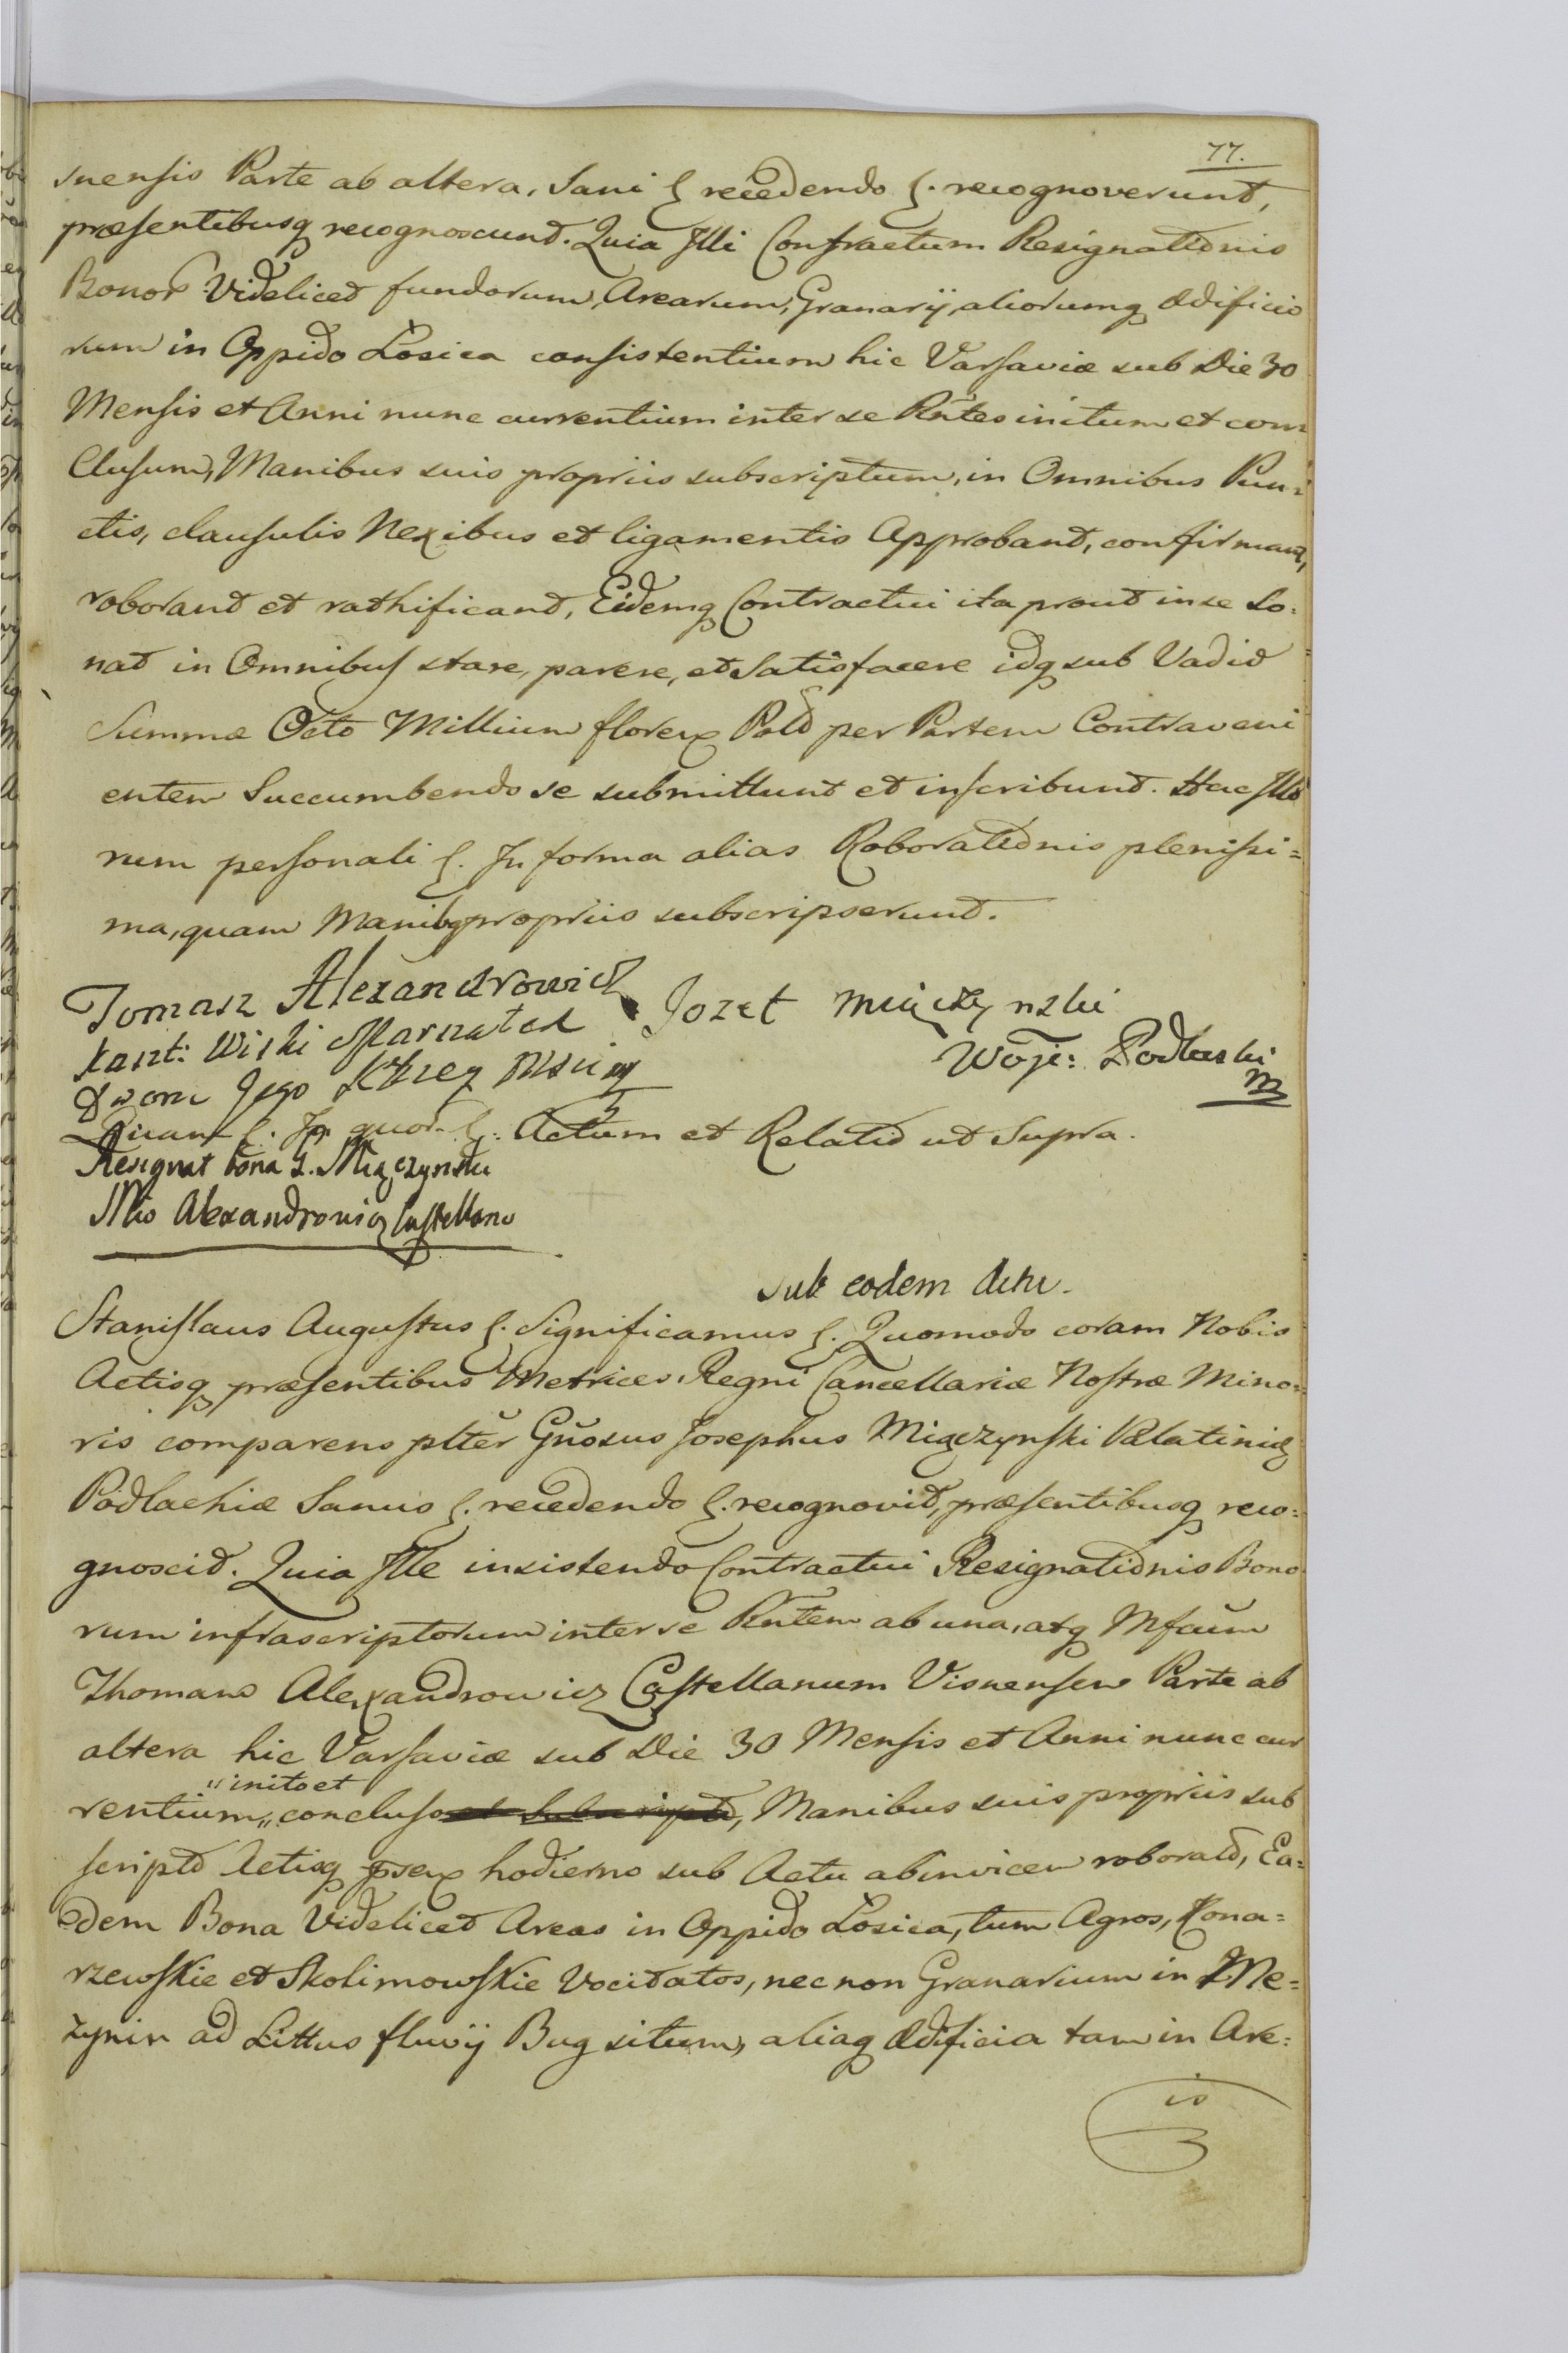 77.
snensis Parte ab altera, Sani &. recedendo &. recognoverunt,
præsentibusq recognoscunt. Quia Illi Contractum Resignationis
Bonor Videlicet fundorum, Arearum, Granarij, aliorumq Ædificio
rum in Oppido Łosica consistentium hic Varsaviæ sub Die 30
Mensis et Anni nunc currentium inter se Rñtes initum et con=
Clusum, Manibus suis propriis subscriptum, in Omnibus Pun=
ctis, clausulis Nexibus et ligamentis Approbant, confirmant,
roborant et rathificant, Eidemq Contractui ita prout in se So=
nat in Omnibus stare, parere, et Satisfacere idq sub Vadio
Summæ Octo Millium floren Pold per Partem Contraveni
entem Succumbendo se submittunt et inscribunt. Hac Illo
rum personali &. In forma alias Roborationis plenissi=
ma, quam Manibq propriis subscripserunt.
Tomasz Alexandrowicz Jozef Miączynski
Kaszt: Wiski Marszałek Woje: Podlaski
Dworu Jego Krolq Mści mp
mp
Quam &. In quor. &. Actum et Relatio ut Supra.
Resignat bona G. Miączynski
Mco Alexandrowicz Castellano
Sub eodem Actu.
Stanislaus Augustus &. Significamus &. Quomodo coram Nobis
Actisq præsentibus Metrices Regni Cancellariæ Nostræ Mino=
ris comparens plter Gñosus Josephus Miączynski Palatinid
Podlachiæ Sanus &. recedendo &. recognovit, præsentibusq reco=
gnoscit. Quia Ille insistendo Contractui Resignationis Bono
rum infrascriptorum inter se Rñtem ab una, atq Mfcum
Thomam Alexandrowicz Castellanum Visnensem Parte ab
altera hic Varsaviæ sub Die 30 Mensis et Anni nunc cur
„inito et
rentium„ concluso et subscripto, Manibus suis propriis sub
scripto Actisq psen hodierno sub Actu abinvicem roborato, Ea=
dem Bona Videlicet Areas in Oppido Łosica, tum Agros, Kona=
rzewskie et Skolimowskie Vocitatos, nec non Granarium in Me=
żynin ad Littus fluvij Bug situm, aliaq Ædificia tam in Are=
is